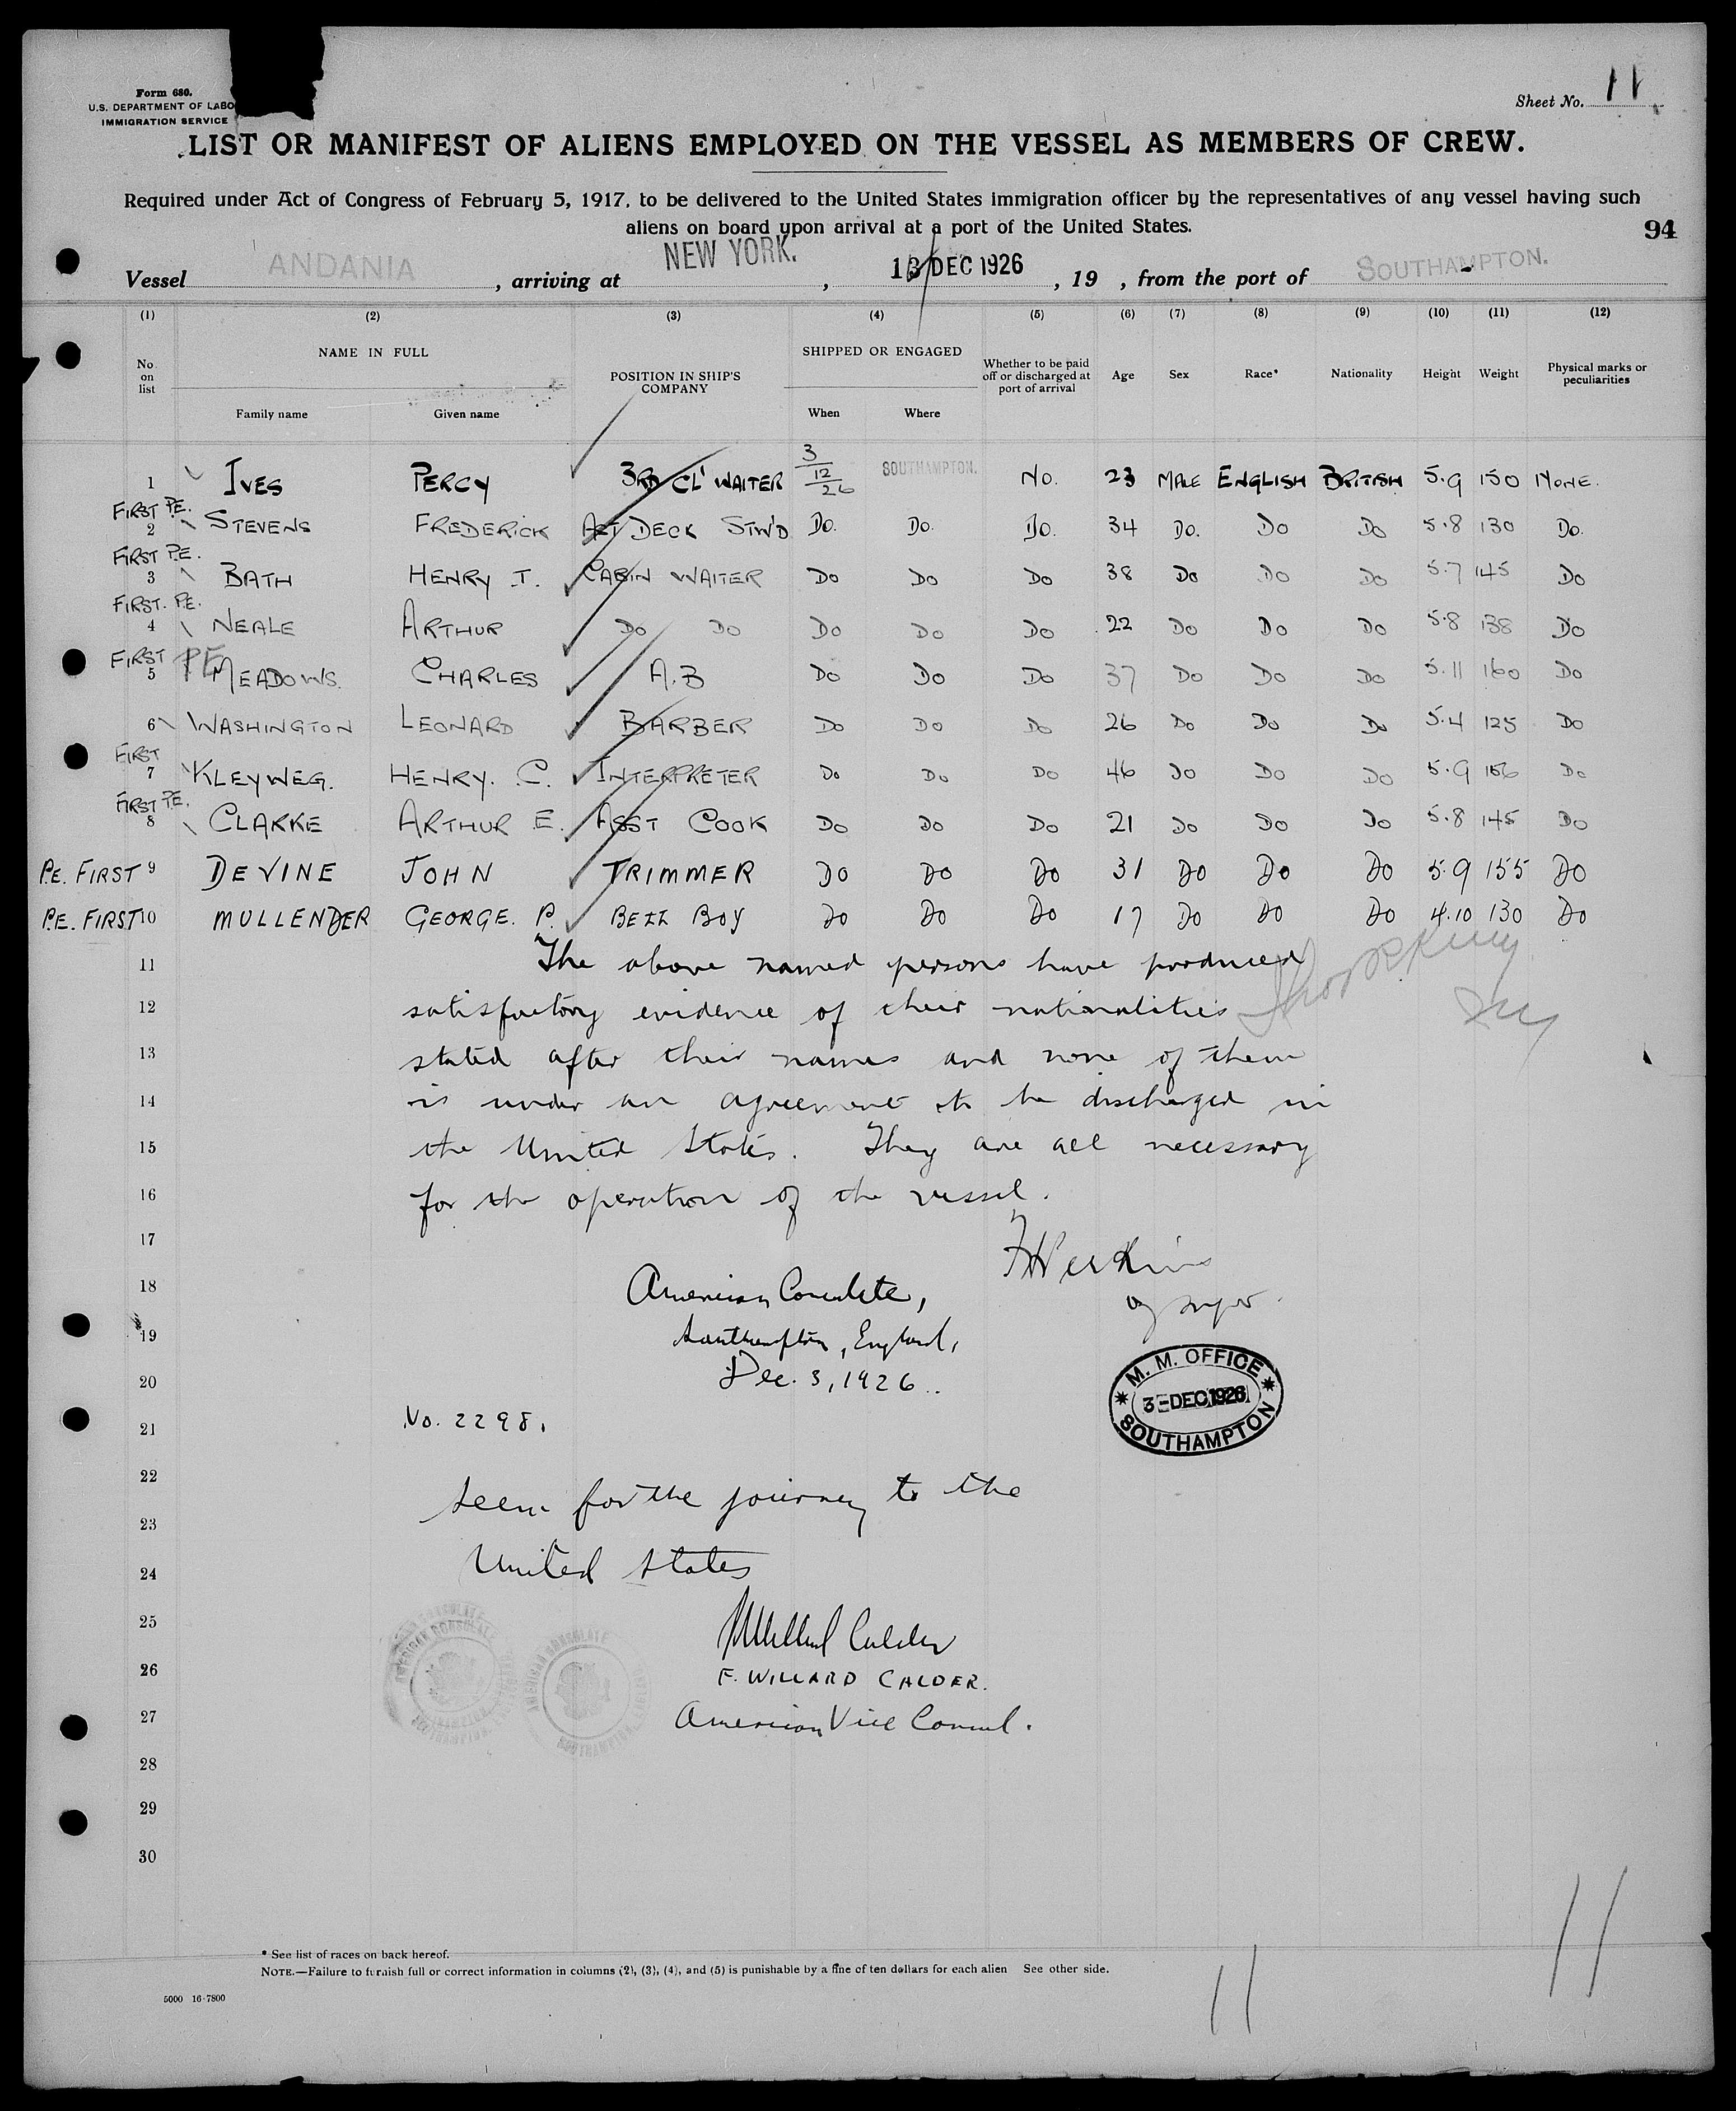 Form 680.
U.S. DEPARTMENT OF LABO
IMMIGRATION SERVICE
Sheet No. 11
LIST OR MANIFEST OF ALIENS EMPLOYED ON THE VESSEL AS MEMBERS OF CREW.
Required under Act of Congress of February 5, 1917, to be delivered to the United States immigration officer by the representatives of any vessel having such
aliens on board upon arrival at a port of the United States.
94
Vessel ANDANIA, arriving at NEW YORK., 13 DEC 1926, 19 , from the port of SOUTHAMPTON.
(1) (2) (3) (4) (5) (6) (7) (8) (9) (10) (11) (12)
No. on list NAME IN FULL Family name Given name POSITION IN SHIP'S COMPANY SHIPPED OR ENGAGED When Where Whether to be paid off or discharged at port of arrival Age Sex Race* Nationality Height Weight Physical marks or peculiarities
1 IVES PERCY 3RD CL WAITER 3/12/26 SOUTHAMPTON. NO. 23 MALE ENGLISH BRITISH 5.9 150 NONE.
FIRST P.E.
2 STEVENS FREDERICK DECK STW'D DO. DO. DO. 34 DO. DO DO 5.8 130 DO.
FIRST P.E.
3 BATH HENRY T. CABIN WAITER DO DO DO 38 DO DO DO 5.7 145 DO
FIRST. P.E.
4 NEALE ARTHUR DO DO DO DO DO 22 DO DO DO 5.8 138 DO
FIRST PE
5 MEADOWS. CHARLES A.B DO DO DO 37 DO DO DO 5.11 160 DO
6 WASHINGTON LEONARD BARBER DO DO DO 26 DO DO DO 5.4 125 DO
FIRST
7 KLEYWEG. HENRY. C. INTERPRETER DO DO DO 46 DO DO DO 5.9 156 DO
FIRST P.E.
8 CLARKE ARTHUR E. ASST COOK DO DO DO 21 DO DO DO 5.8 145 DO
P.E. FIRST 9 DEVINE JOHN TRIMMER DO DO DO 31 DO DO DO 5.9 155 DO
P.E. FIRST 10 MULLENDER GEORGE. P. BELL BOY DO DO DO 17 DO DO DO 4.10 130 DO
11 The above named persons have produced
12 satisfactory evidence of their nationalities
13 stated after their names and none of them
14 is under an agreement to be discharged in
15 the United States. They are all necessary
16 for the operation of the vessel.
17
18 American Consulate,
19 Southampton, England,
20 Dec. 3, 1926.
M. M. OFFICE
3 - DEC 1926
SOUTHAMPTON
21 No. 2298.
22
Seen for the journey to the
23
United States
24
25
26 F. WILLARD CALDER.
27 American Vice Consul.
AMERICAN CONSULATE
AMERICAN CONSULATE
28
29
30
* See list of races on back hereof.
NOTE.—Failure to furnish full or correct information in columns (2), (3), (4), and (5) is punishable by a fine of ten dollars for each alien See other side.
5000 16-7800
11
11